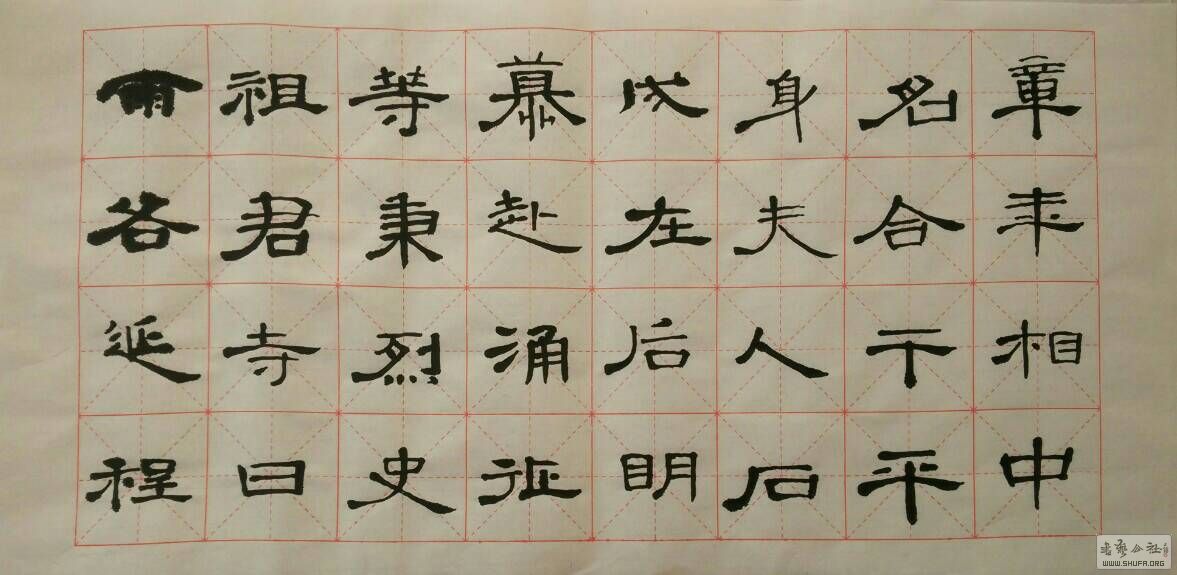 章来相中
名合下平
身夫人石
成左后明
慕赴涌征
等秉烈史
祖君寺曰
雨各延程
书艺公社
WWW.SHUFA.ORG